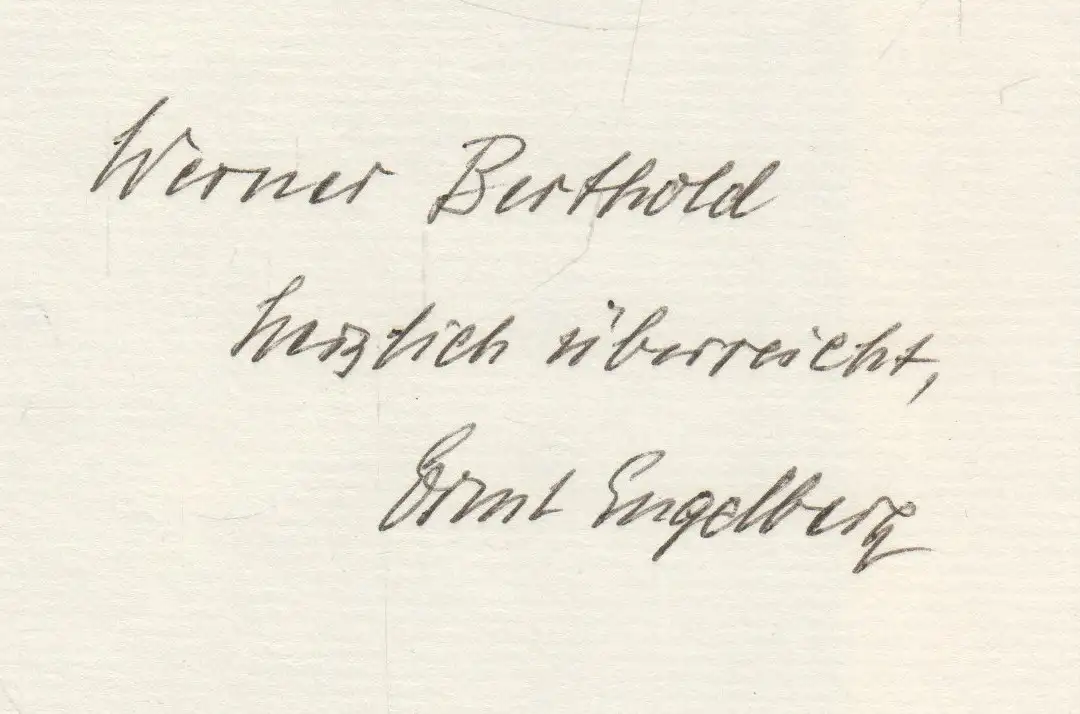 Werner Berthold
herzlich überreicht,
Ernst Engelberg